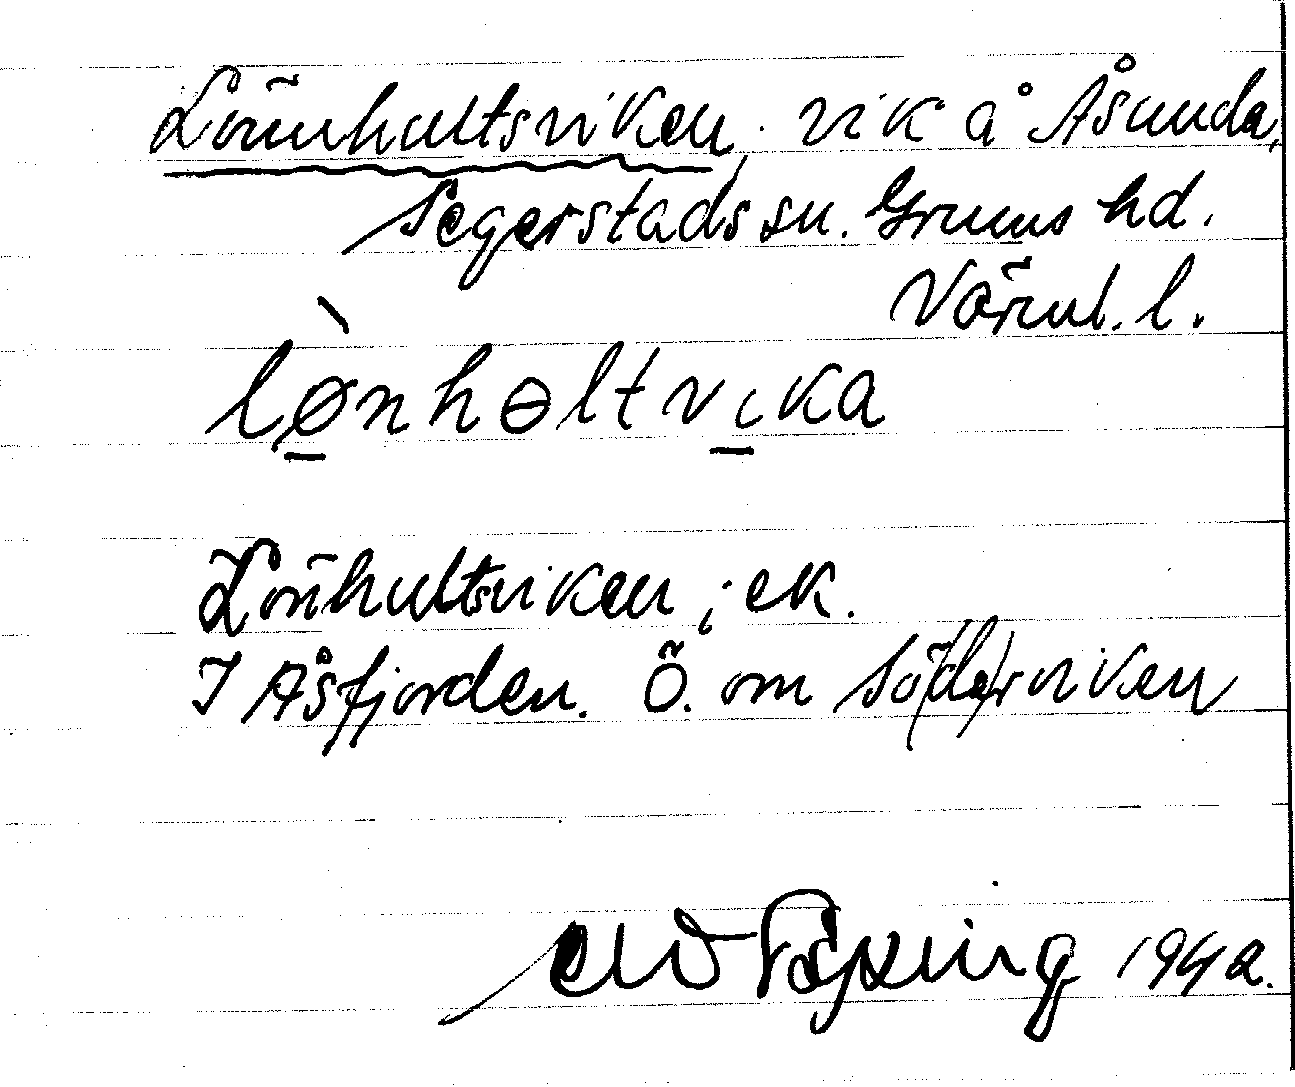 Lönnhultsviken, vik å Åsunda,
Segerstads sn. Grums hd.
Värml. l.
lø̱̀nhɵltvi̱ka
Lönhultsviken; ek.
I Åsfjorden. Ö. om Sö(de)rviken
1942.